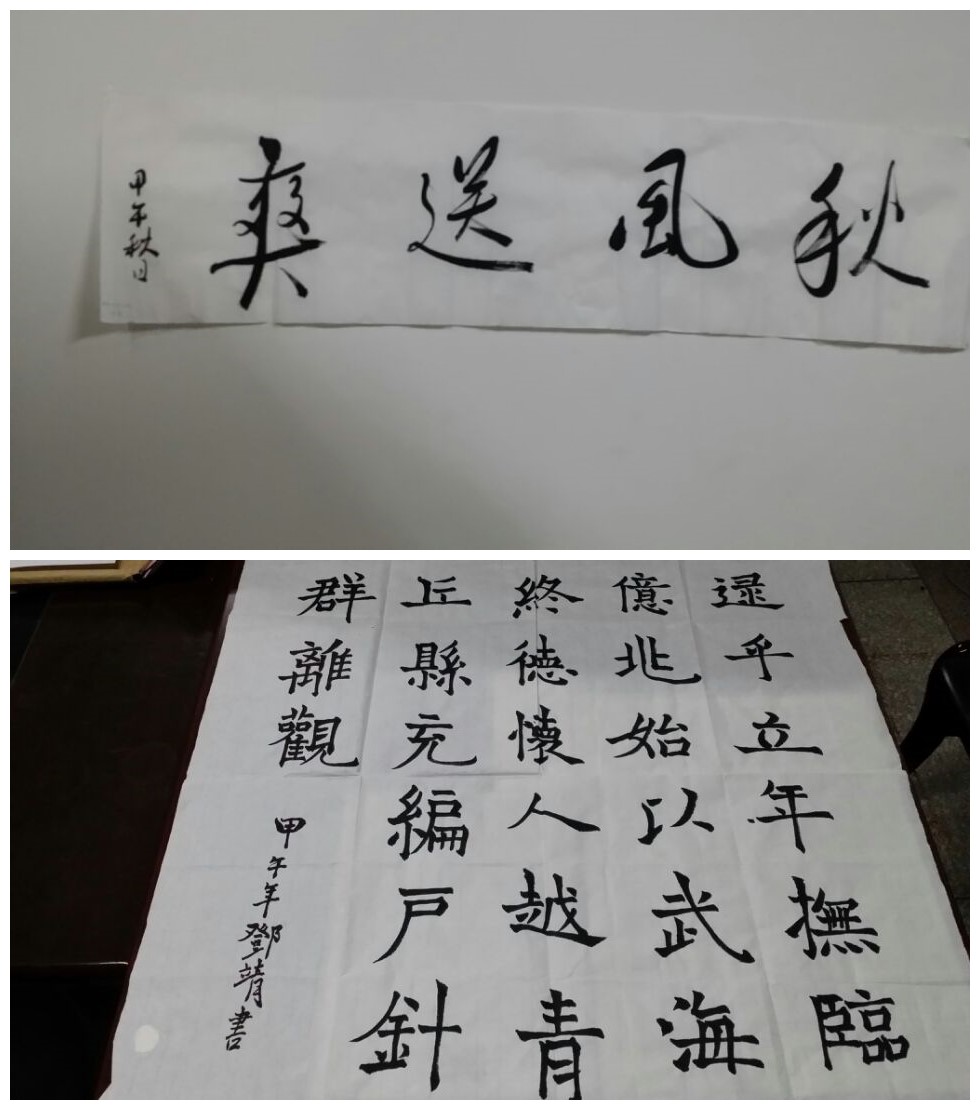 秋風送爽
甲午秋日
逮乎立年撫臨
億兆始以武海
終德懷人越青
丘縣充編戶針
群離觀
甲午年鄧靖書